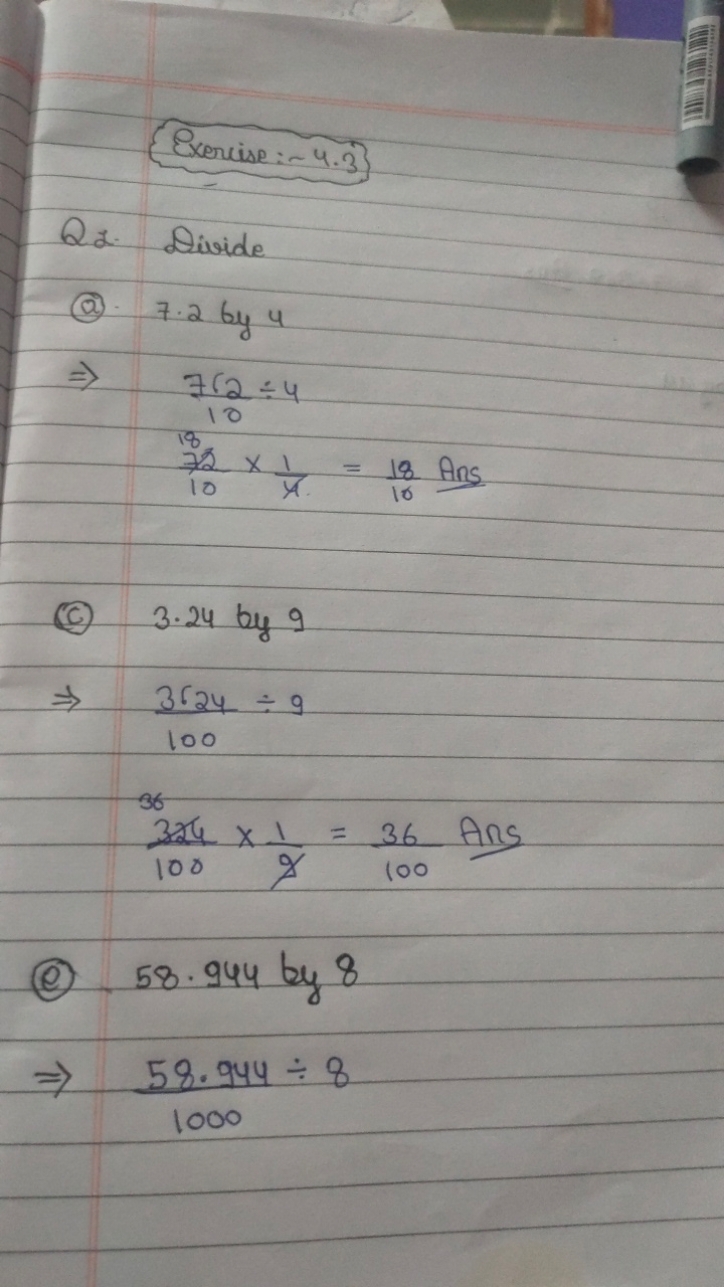 Exercise :- 4.3
Q 1. Divide
(a). 7.2 by 4
⇒ 7.2/10 ÷ 4
18
72/10 × 1/4 = 18/10 Ans
(c) 3.24 by 9
⇒ 3.24/100 ÷ 9
36
324/100 × 1/9 = 36/100 Ans
(e) 58.944 by 8
⇒ 58.944/1000 ÷ 8